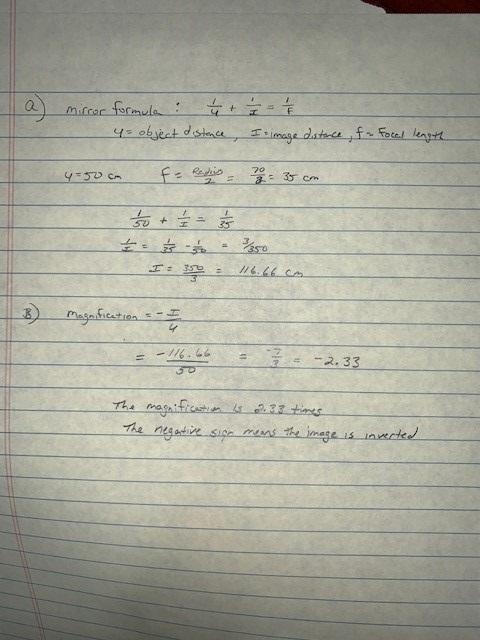 a) mirror formula : 1/u + 1/I = 1/f
u = object distance, I = image distance, f = Focal length
u = 50 cm f = Radius/2 = 70/2 = 35 cm
1/50 + 1/I = 1/35
1/I = 1/35 - 1/50 = 3/350
I = 350/3 = 116.66 cm
B) Magnification = - I/u
= -116.66/50 = -7/3 = -2.33
The magnification is 2.33 times
The negative sign means the image is inverted